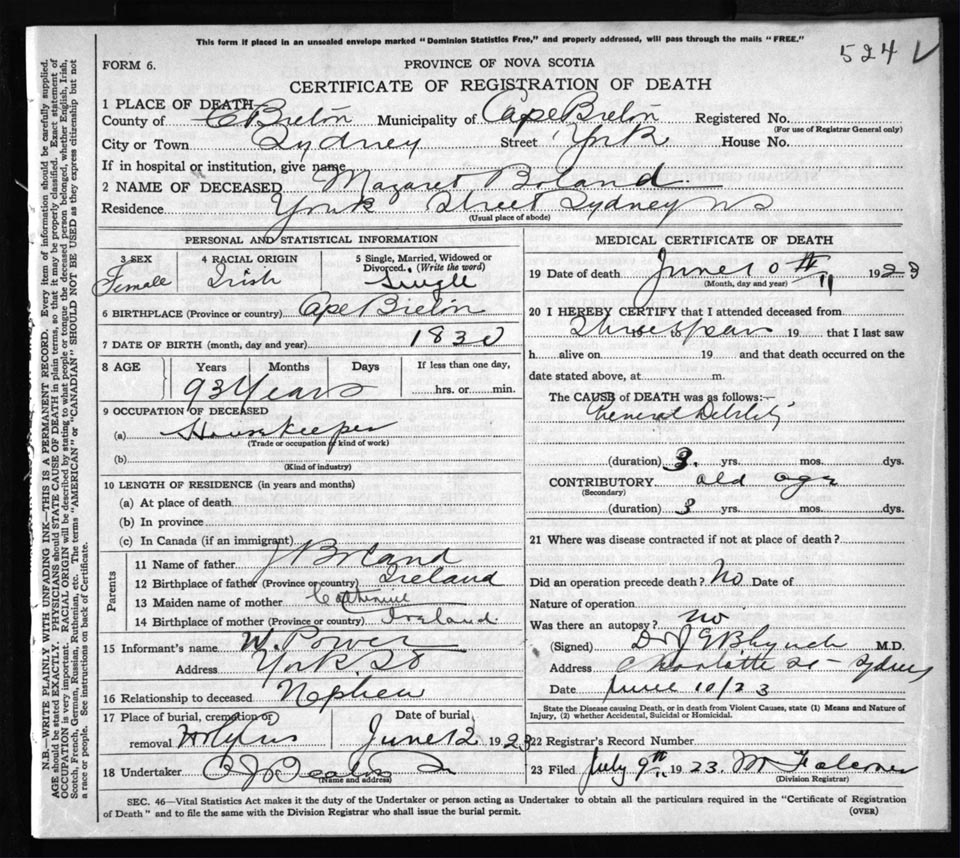 This form if placed in an unsealed envelope marked "Dominion Statistics Free," and properly addressed, will pass through the mails "FREE."
524 V
FORM 6.
PROVINCE OF NOVA SCOTIA
CERTIFICATE OF REGISTRATION OF DEATH
1 PLACE OF DEATH
County of C Breton Municipality of Cape Breton Registered No.
(For use of Registrar General only)
City or Town Sydney Street York House No.
If in hospital or institution, give name
2 NAME OF DECEASED Magaret Boland
Residence York Street Sydney NS
(Usual place of abode)
PERSONAL AND STATISTICAL INFORMATION
3 SEX 4 RACIAL ORIGIN 5 Single, Married, Widowed or Divorced. (Write the word)
Female Irish Single
6 BIRTHPLACE (Province or country) Cape Breton
7 DATE OF BIRTH (month, day and year) 1830
8 AGE Years Months Days If less than one day,
93 Years hrs. or min.
9 OCCUPATION OF DECEASED
(a) Housekeeper
(Trade or occupation or kind of work)
(b)
(Kind of industry)
10 LENGTH OF RESIDENCE (in years and months)
(a) At place of death
(b) In province
(c) In Canada (if an immigrant)
Parents
11 Name of father J Boland
12 Birthplace of father (Province or country) Ireland
13 Maiden name of mother Catherine
14 Birthplace of mother (Province or country) Ireland
15 Informant's name W. Power
Address York St
16 Relationship to deceased Nephew
17 Place of burial, cremation or Date of burial
removal June 12 1923
18 Undertaker
(Name and address)
MEDICAL CERTIFICATE OF DEATH
19 Date of death June 10th 1923
(Month, day and year)
20 I HEREBY CERTIFY that I attended deceased from
19 19 that I last saw
h alive on 19 and that death occurred on the
date stated above, at m.
The CAUSE of DEATH was as follows:—
General Debility
(duration) 3. yrs. mos. dys.
CONTRIBUTORY old age
(Secondary)
(duration) 3 yrs. mos. dys.
21 Where was disease contracted if not at place of death?
Did an operation precede death? No Date of
Nature of operation
Was there an autopsy? no
(Signed) Dr J G B Lynch M.D.
Address Charlotte St - Sydney
Date June 10/23
State the Disease causing Death, or in death from Violent Causes, state (1) Means and Nature of
Injury, (2) whether Accidental, Suicidal or Homicidal.
22 Registrar's Record Number
23 Filed July 9th 1923. M Falconer
(Division Registrar)
SEC. 46—Vital Statistics Act makes it the duty of the Undertaker or person acting as Undertaker to obtain all the particulars required in the "Certificate of Registration
of Death" and to file the same with the Division Registrar who shall issue the burial permit.
(OVER)
N.B.—WRITE PLAINLY WITH UNFADING INK—THIS IS A PERMANENT RECORD. Every item of information should be carefully supplied.
AGE should be stated EXACTLY. PHYSICIANS should STATE CAUSE OF DEATH in plain terms, so that it may be properly classified. Exact statement of
OCCUPATION is very important. RACIAL ORIGIN will be described by stating to what people or tongue the deceased person belonged, whether English, Irish,
Scotch, French, German, Russian, Ruthenian, etc. The terms "AMERICAN" or "CANADIAN" SHOULD NOT BE USED as they express citizenship but not
a race or people. See instructions on back of Certificate.